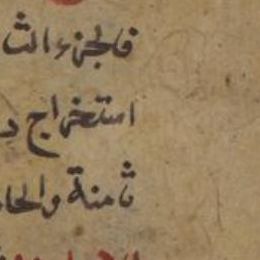 فالجزء الثا
استخراج د
ثامنة والحا